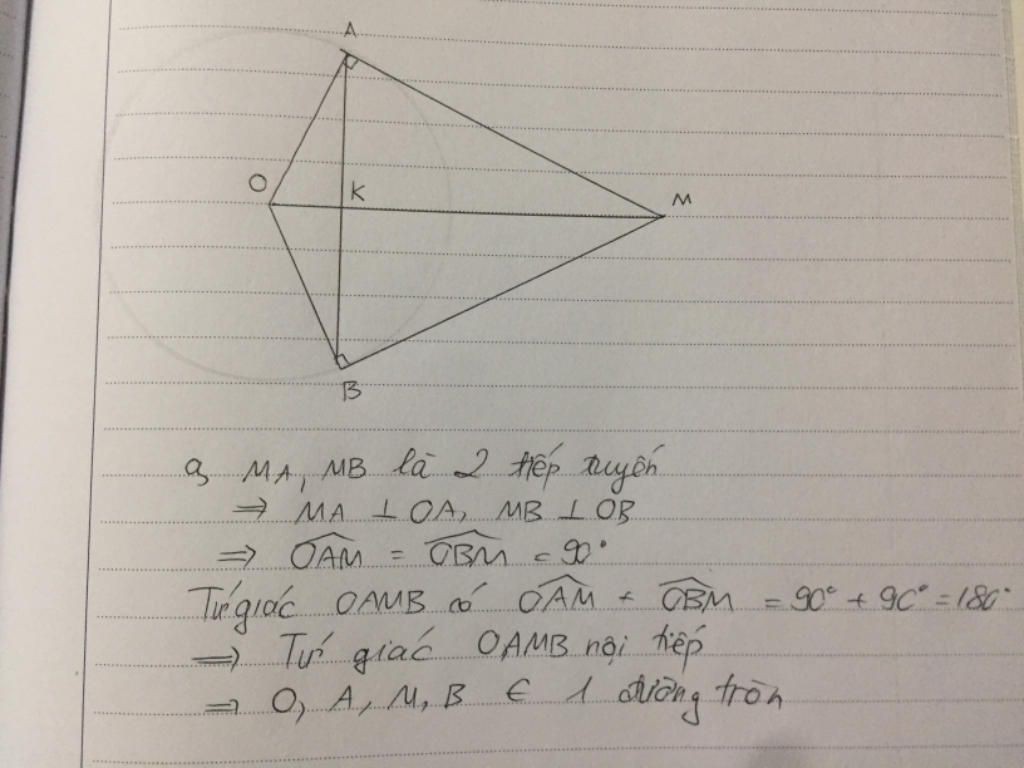 A
O
K
M
B
a, MA, MB là 2 tiếp tuyến
⇒ MA ⊥ OA, MB ⊥ OB
⇒ \widehat{OAM} = \widehat{OBM} = 90°
Tứ giác OAMB có \widehat{OAM} + \widehat{OBM} = 90° + 90° = 180°
⇒ Tứ giác OAMB nội tiếp
⇒ O, A, M, B ∈ 1 đường tròn